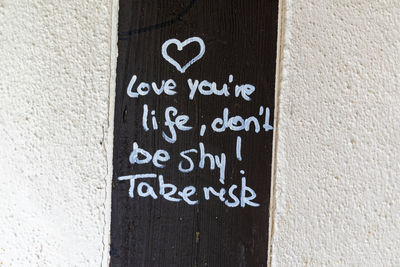 Love you're
life, don't
be shy!
Take risk